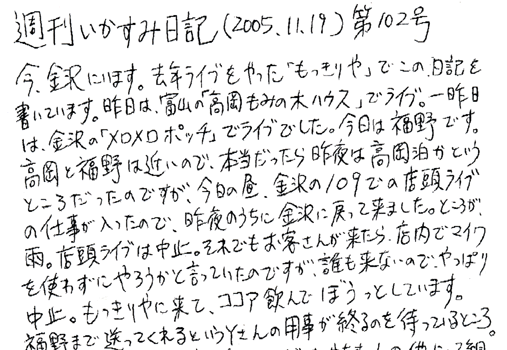 週刊いかすみ日記(2005.11.19)第102号
今、金沢にいます。去年ライブをやった「もっきりや」でこの日記を
書いています。昨日は、富山の「高岡もみの木ハウス」でライブ。一昨日
は、金沢の「メロメロポッチ」でライブでした。今日は福野です。
高岡と福野は近いので、本当だったら昨夜は高岡泊かという
ところだったのですが、今日の昼、金沢の109での店頭ライブ
の仕事が入ったので、昨夜のうちに金沢に戻って来ました。ところが、
雨。店頭ライブは中止。それでもお客さんが来たら、店内でマイク
を使わずにやろうかと言っていたのですが、誰も来ないので、やっぱり
中止。もっきりやに来て、ココア飲んでぼうっとしています。
福野まで送ってくれるというYさんの用事が終るのを待っているところ。